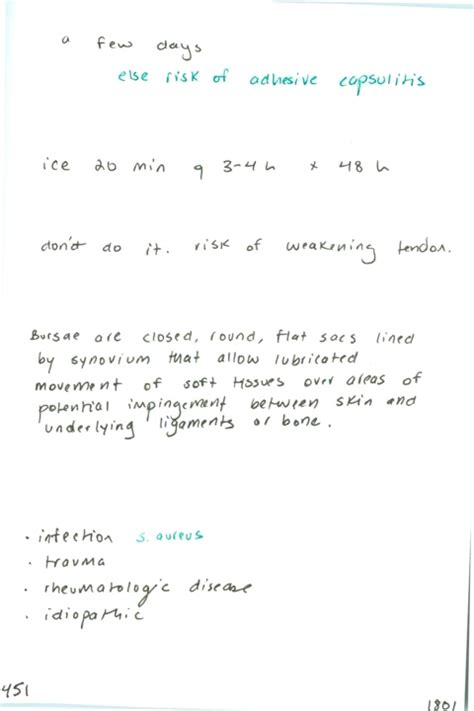 a few days
else risk of adhesive capsulitis
ice 20 min q 3-4 h x 48 h
don't do it. risk of weakening tendon.
Bursae are closed, round, flat sacs lined
by synovium that allow lubricated
movement of soft tissues over areas of
potential impingement between skin and
underlying ligaments or bone.
• infection s. aureus
• trauma
• rheumatologic disease
• idiopathic
451
1801